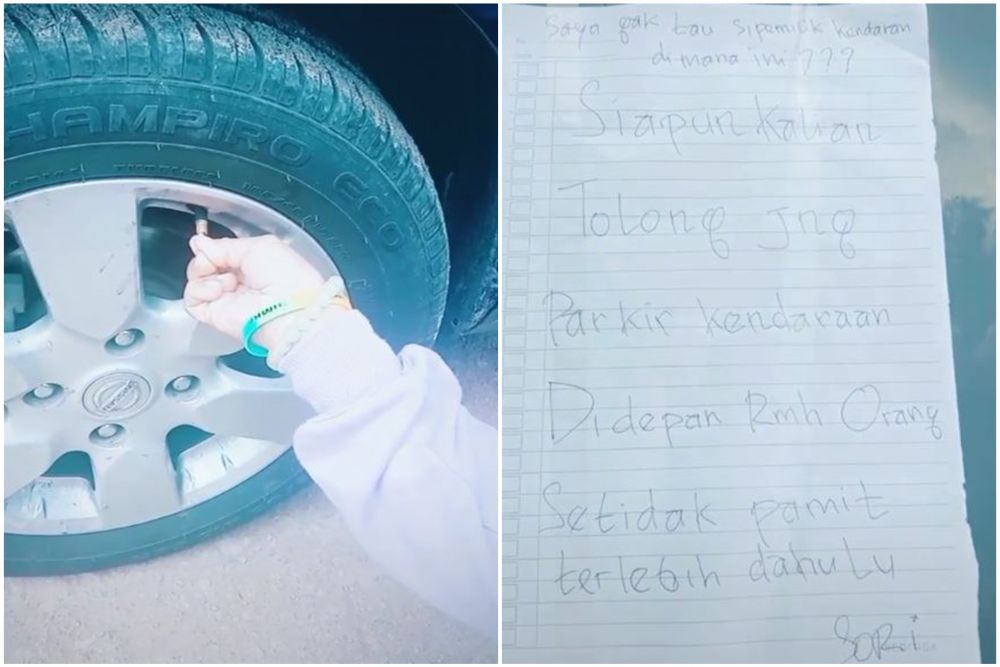 HAMPIRO ECO
NISSAN
Saya gak tau sipemilik kendaran
dimana ini ???
Siapun Kalian
Tolong jng
Parkir kendaraan
Didepan Rmh Orang
Setidak pamit
terlebih dahulu